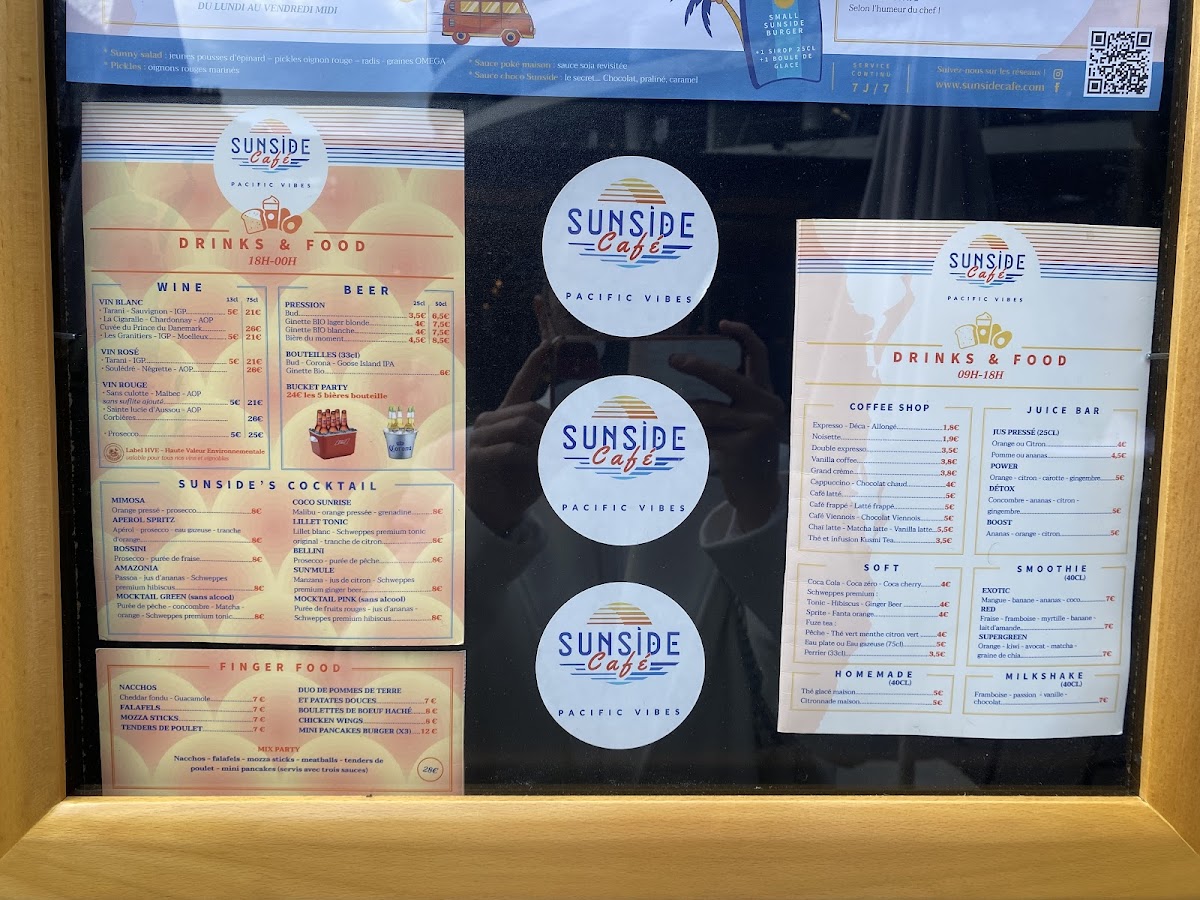 DU LUNDI AU VENDREDI MIDI
SMALL
SUNSIDE
BURGER
+1 SIROP 25CL
+1 BOULE DE
GLACE
Selon l'humeur du chef !
* Sunny salad : jeunes pousses d'épinard – pickles oignon rouge – radis – graines OMEGA
* Pickles : oignons rouges marinés
* Sauce poké maison : sauce soja revisitée
* Sauce choco Sunside : le secret... Chocolat, praliné, caramel
SERVICE
CONTINU
7J/7
Suivez-nous sur les réseaux !
www.sunsidecafe.com
SUNSIDE
Café
PACIFIC VIBES
DRINKS & FOOD
18H-00H
WINE
VIN BLANC 15cl 75cl
• Tarani - Sauvignon - IGP 5€ 21€
• La Cigaralle - Chardonnay - AOP
Cuvée du Prince du Danemark 26€
• Les Granitiers - IGP - Moelleux 5€ 21€
VIN ROSÉ
• Tarani - IGP 5€ 21€
• Soulédré - Négrette - AOP 26€
VIN ROUGE
• Sans culotte - Malbec - AOP
sans sulfite ajouté 5€ 21€
• Sainte lucie d'Aussou - AOP
Corbières 26€
• Prosecco 5€ 25€
Label HVE - Haute Valeur Environnementale
valable pour tous nos vins et vignobles
BEER
PRESSION 25cl 50cl
Bud 3,5€ 6,5€
Ginette BIO lager blonde 4€ 7,5€
Ginette BIO blanche 4€ 7,5€
Bière du moment 4,5€ 8,5€
BOUTEILLES (33cl)
Bud - Corona - Goose Island IPA
Ginette Bio 6€
BUCKET PARTY
24€ les 5 bières bouteille
SUNSIDE'S COCKTAIL
MIMOSA
Orange pressé - prosecco 8€
APEROL SPRITZ
Apérol - prosecco - eau gazeuse - tranche
d'orange 8€
ROSSINI
Prosecco - purée de fraise 8€
AMAZONIA
Passoa - jus d'ananas - Schweppes
premium hibiscus 8€
MOCKTAIL GREEN (sans alcool)
Purée de pêche - concombre - Matcha -
orange - Schweppes premium tonic 8€
COCO SUNRISE
Malibu - orange pressée - grenadine 8€
LILLET TONIC
Lillet blanc - Schweppes premium tonic
original - tranche de citron 8€
BELLINI
Prosecco - purée de pêche 8€
SUN'MULE
Manzana - jus de citron - Schweppes
premium ginger beer 8€
MOCKTAIL PINK (sans alcool)
Purée de fruits rouges - jus d'ananas -
Schweppes premium hibiscus 8€
FINGER FOOD
NACCHOS
Cheddar fondu - Guacamole 7 €
FALAFELS 7 €
MOZZA STICKS 7 €
TENDERS DE POULET 7 €
DUO DE POMMES DE TERRE
ET PATATES DOUCES 7 €
BOULETTES DE BŒUF HACHÉ 8 €
CHICKEN WINGS 8 €
MINI PANCAKES BURGER (X3) 12 €
MIX PARTY
Nacchos - falafels - mozza sticks - meatballs - tenders de
poulet - mini pancakes (servis avec trois sauces)
28€
SUNSIDE
Café
PACIFIC VIBES
SUNSIDE
Café
PACIFIC VIBES
SUNSIDE
Café
PACIFIC VIBES
SUNSIDE
Café
PACIFIC VIBES
DRINKS & FOOD
09H-18H
COFFEE SHOP
Expresso - Déca - Allongé 1,8€
Noisette 1,9€
Double expresso 3,5€
Vanilla coffee 3,8€
Grand crème 3,8€
Cappuccino - Chocolat chaud 4€
Café latté 5€
Café frappé - Latté frappé 5€
Café Viennois - Chocolat Viennois 5€
Chai latte - Matcha latte - Vanilla latte 5,5€
Thé et infusion Kusmi Tea 3,5€
JUICE BAR
JUS PRESSÉ (25CL)
Orange ou Citron 4€
Pomme ou ananas 4,5€
POWER
Orange - citron - carotte - gingembre 5€
DÉTOX
Concombre - ananas - citron -
gingembre 5€
BOOST
Ananas - orange - citron 5€
SOFT
Coca Cola - Coca zéro - Coca cherry 4€
Schweppes premium :
Tonic - Hibiscus - Ginger Beer 4€
Sprite - Fanta orange 4€
Fuze tea :
Pêche - Thé vert menthe citron vert 4€
Eau plate ou Eau gazeuse (75cl) 5€
Perrier (33cl) 3,5€
SMOOTHIE
(40CL)
EXOTIC
Mangue - banane - ananas - coco 7€
RED
Fraise - framboise - myrtille - banane -
lait d'amande 7€
SUPERGREEN
Orange - kiwi - avocat - matcha -
graine de chia 7€
HOMEMADE
(40CL)
Thé glacé maison 5€
Citronnade maison 5€
MILKSHAKE
(40CL)
Framboise - passion - vanille -
chocolat 7€